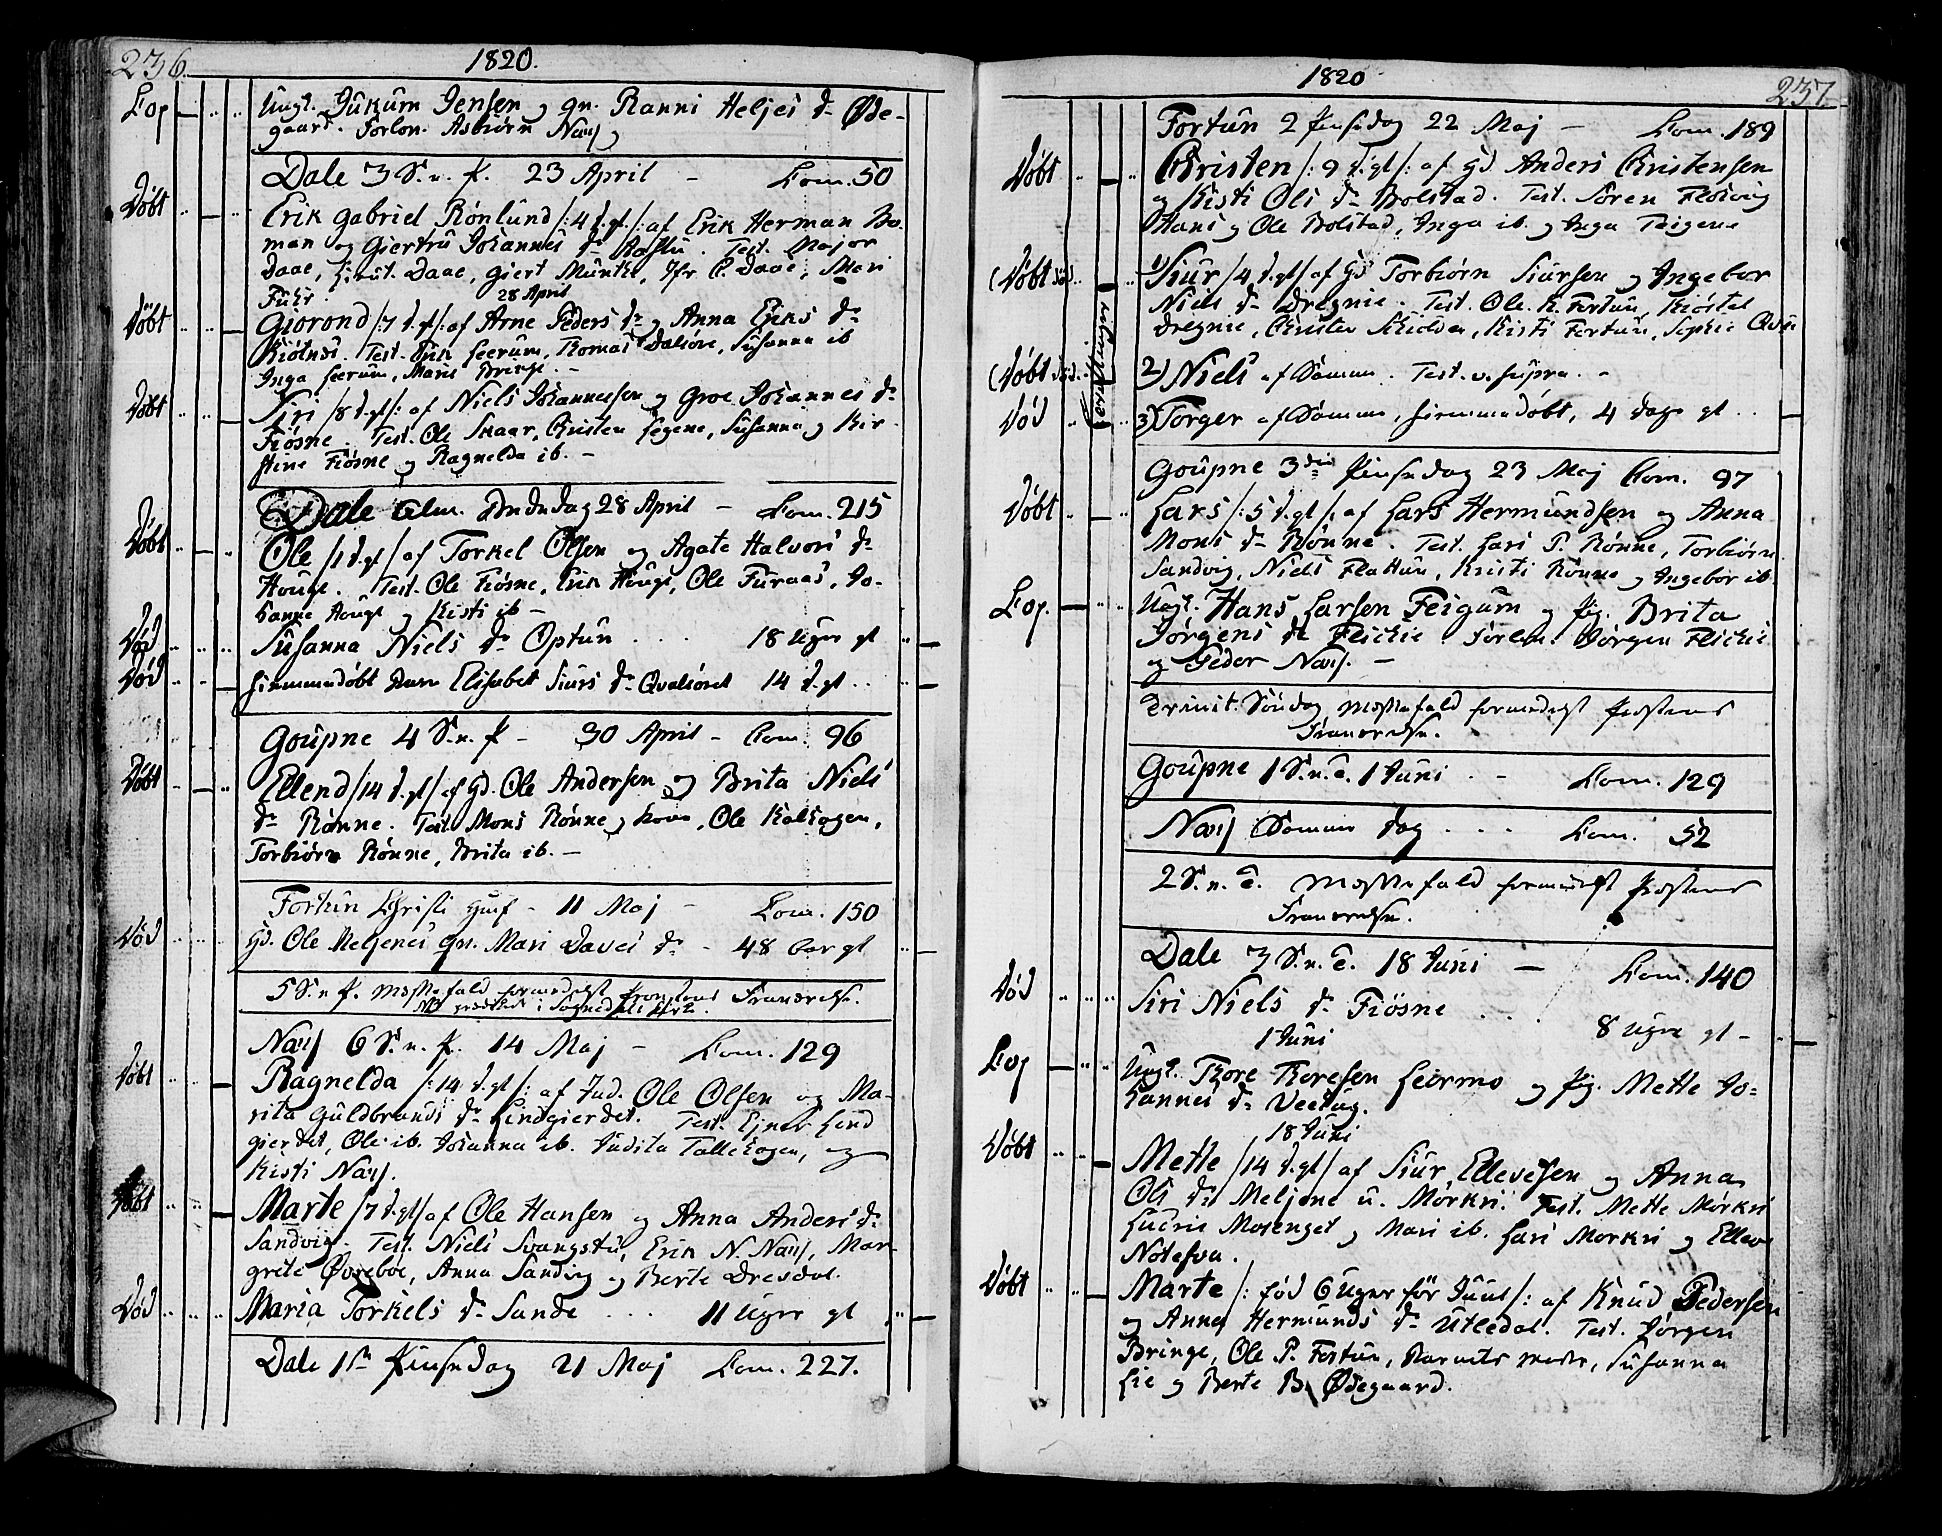 236.
1820.
Cop
Ungk. Jukum Jensen og gn. Ranni Heljes dr Øde-
gaard. Forlov. Asbiørn Næss
Dale 3 S. n. P. 23 April - Com. 50
Døbt
Erik Gabriel Rönlund /: 4 d. gl :/ af Erik Herman Bo-
man og Giertru Johannes dr Test. Major
Daae, Lieut. Daae, Giert Munthe, Jfr C. Daae, Mari
Fuhr.
28 April
Døbt
Giorond /: 7 d. gl :/ af Arne Peders dr og Anna Eriks dr
Kiølnes. Test. Erik Leerum, Thomas Dalsøre, Susanna ib
Inga Leerum, Maris Bringe. -
Døbt
Siri /8 d. gl/: af Niels Johannessen og Groe Johannes dr
Fiøsne. Test. Ole Skaar, Christen Fegene, Susanna og Kir-
stine Fiøsne og Ragnelda ib. -
Dale Alm. Bededag 28 April - Com. 215
Døbt
Ole /1 d. gl/ af Torkel Olsen og Agate Halvors dr
Houge. Test. Ole Fiøsne, Erik Houge, Ole Furaas, Jo-
hanne Houge og Kisti ib -
Død
Susanna Niels dr Optun . . . 18 Uger gl
Død
hiemmedøbt Anne Elisabet Siurs dr Qvalsøret 14 d. gl. .
Goupne 4 S. n. P - 30 April - Com. 96
Døbt
Ellend /14 d. gl/ af Gd. Ole Andersen og Brita Niels
dr Rønne. Test. Mons Rønne og kone, Ole Kalhagen,
Torbiørn Rønne, Brita ib. -
Fortun Christi Himf - 11 Maj - Com. 150
Død
Gd. Ole Meljenes gn. Mari Daves dr - 48 aar gl
5 S. n P. Messefald formedelst Provstens Fraværelse.
NB prædiket i Sogndals Kirke.
Næss 6 S. n. P. 14 Maj - Com. 129
Døbt
Ragnelda /: 14 d. gl /: af Ind. Ole Olsen og Ma-
rita Guldbrands dr Lindgierdet. Test. Ejner Lind
gierdet, Ole ib. Johanna ib. Judita Tallehagen, og
Kisti Næss.
Døbt
Marte /7 d. gl/ af Ole Hansen og Anna Anders dr
Sandvig. Test. Niels Svangstu, Erik N. Næss, Mar-
grete Øvreboe, Anna Sandvig og Berte Dresdal.
Død
Maria Torkels dr Sande . . 11 Uger gl
Dale 1ste Pinsedag 21 Maj Com. 227.
1820
237
Fortun 2 Pinsedag 22 Maj - Com. 189
Døbt
Christen /: 9 d. gl /: af Gd Anders Christensen
og Kisti Ols dr Bolstad. Test. Søren Flohvig
Hans og Ole Bolstad, Inga ib. og Inga Teigene
(Døbt død
1) Siur /4 d. gl/ af Gd Torbiørn Siursen og Ingebor
Niels dr Dregnie. Test. Ole K. Fortun, Kiøstel
Dregnie, Christen Skiolden, Kisti Fortun, Sophie
(Døbt død.
2) Niels af Samme. Test. v. supra. -
Død
3) Torger af Samme, hiemmedøbt, 4 dage gl . .
Goupne 3die Pinsedag 23 Maj Com. 97
Døbt
Lars /: 5 d. gl /: af Lars Hermundsen og Anna
Mons dr Rønne. Test. Lars P. Rønne, Torbiørn
Sandvig, Niels Flattun, Kristi Rønne og Ingebor ib.
Cop.
Ungk. Hans Larsen Feigum og Pig. Brita
Jørgens dr Flickie. Forlov. Jørgen Flickie
og Peder Næss. -
Trinit. Søndag Messefald formedelst Provstens
Fraværelse.
Goupne 1 S. n. T. 1 Juni - Com. 129
Næss Samme Dag . . . Com. 52
2 S. n. T. Messefald formedelst Provstens
Fraværelse.
Dale 3 S. n. T. 18 Juni - Com. 140
Død
Siri Niels dr Fiøsne . . . 8 Uger gl -
1 Juni
Cop
Ungk. Thore Thoresen Leermo og Pig. Mette Jo-
hannes dr Veetug.
18 Juni
Døbt
Mette /14 d. gl/ af Siur Ellevesen og Anna
Ols dr Meljene u. Mørkri. Test. Mette Mørkri
Ludris Mosenget og Mari ib. Lars Mørkri og Elleve
Notesva.
Døbt
Marte /: fød 6 Uger før Juul /: af Knud Pedersen
og Anna Hermunds dr Utledal. Test. Jørgen
Bringe, Ole P. Fortun, Susanna
Lie og Berte B. Ødegaard.